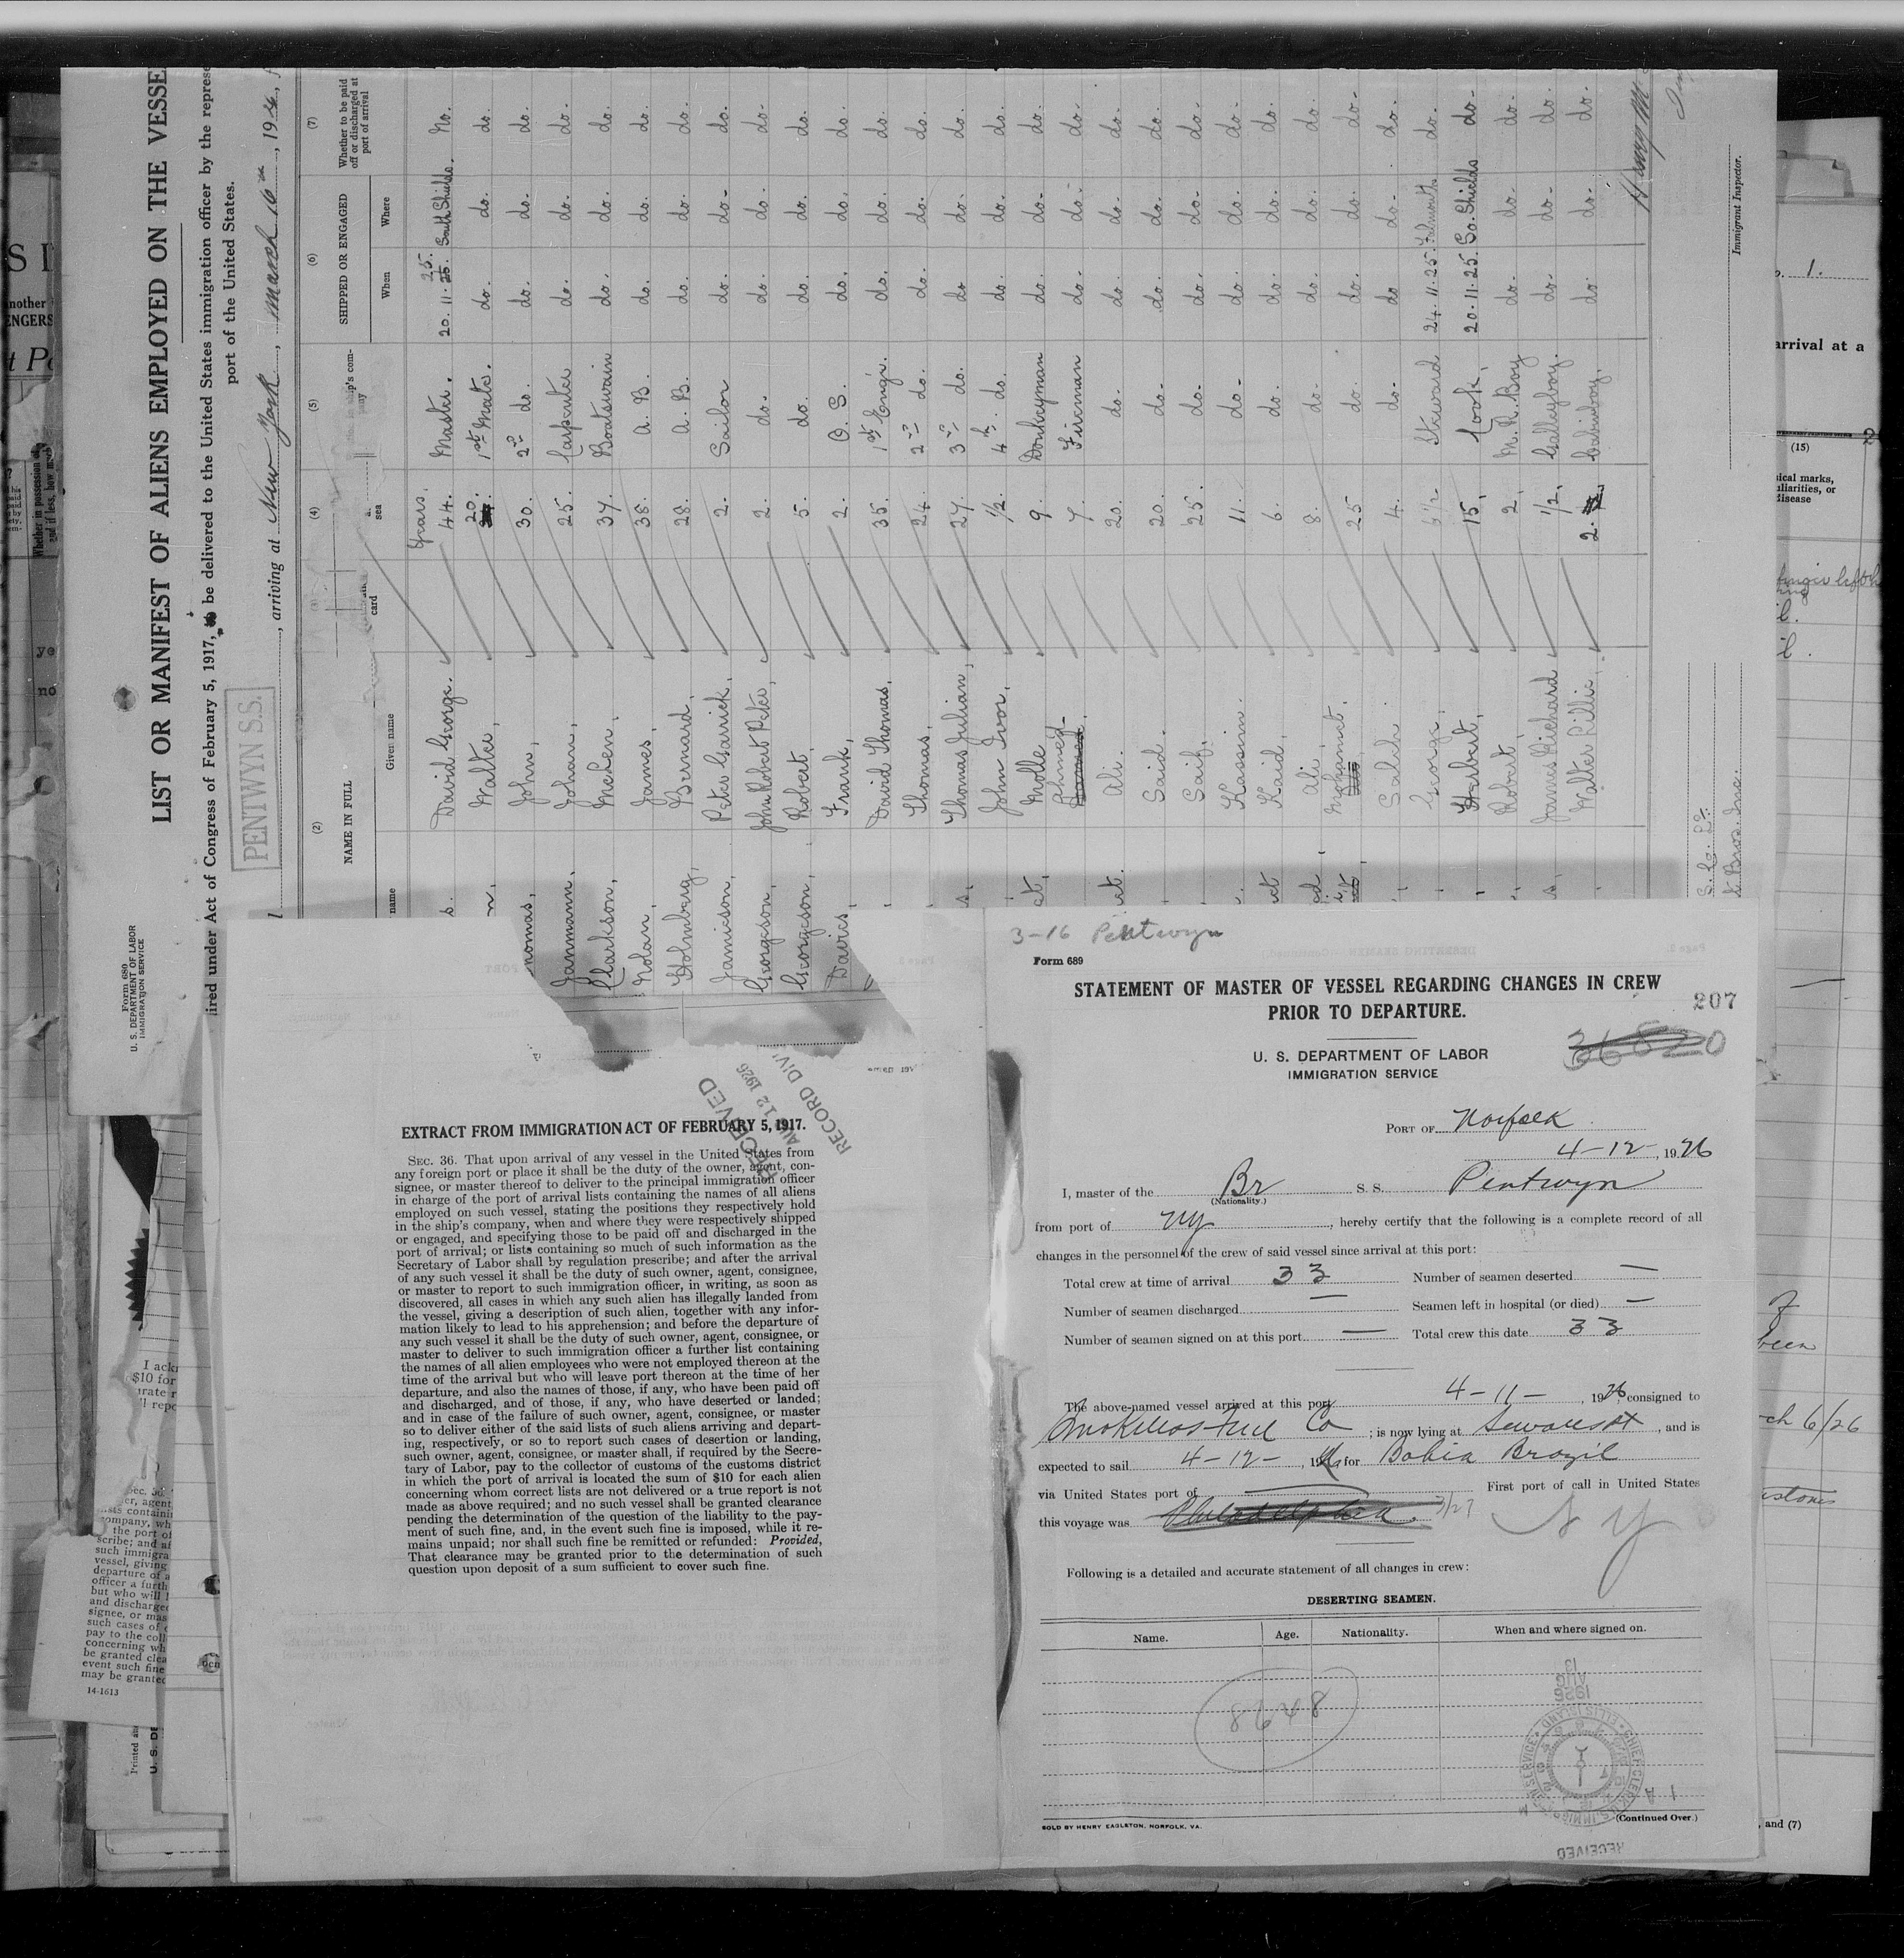 Form 680
U. S. DEPARTMENT OF LABOR
IMMIGRATION SERVICE
LIST OR MANIFEST OF ALIENS EMPLOYED ON THE VESSE
ired under Act of Congress of February 5, 1917, to be delivered to the United States immigration officer by the represe
port of the United States.
PENTWYN S.S.
, arriving at New York, March 16th, 19
(2) (4) (5) (6) (7)
NAME IN FULL
name Given name
card
sea
SHIPPED OR ENGAGED
When Where
Whether to be paid off or discharged at port of arrival
s. David George. Years. 44. Master. 20.11.25. South Shields. No.
n, Walter, 20. 1st Mate. do. do. do.
homas, John, 30. 2nd do. do. do. do.
Janmann, Johan, 25. Carpenter do. do. do.
Clarkson, McLen, 37. Boatswain do. do. do.
Nolan, James, 38. A. B. do. do. do.
Holmberg, Bernard, 28. A. B. do. do. do.
Jamieson, Peter Garrick, 2. Sailor do. do. do.
Georgeson, John Robert Peter, 2. do. do. do. do.
Georgeson, Robert, 5. do. do. do. do.
Davies, Frank, 2. O. S. do. do. do.
David Thomas, 35. 1st Engr. do. do. do.
Thomas, 24 2nd do. do. do. do.
s, Thomas Julian, 27. 3rd do. do. do. do.
John Ivor, 1/2. 4th do. do. do. do.
et, Molle 9. Donkeyman do. do. do.
Ahmed 7 Fireman do. do. do.
et. Ali. 20. do. do. do. do.
Said. 20. do. do. do. do.
Saif. 25. do. do. do. do.
Kassim. 11. do. do. do. do.
et Kaid, 6. do. do. do. do.
ed Ali 8. do. do. do. do.
Mohamet. 25 do. do. do. do.
Saleh. 4. do. do. do. do.
George, 6 1/2 Steward 24.11.25. Falmouth. do.
Herbert, 15, Cook, 20.11.25. So. Shields do.
Robert, 2, M. R. Boy do. do. do.
s, James Richard 1/2, Galleyboy. do. do. do.
Walter Lillie, 2. Cabinboy, do. do. do.
Immigrant Inspector.
EXTRACT FROM IMMIGRATION ACT OF FEBRUARY 5, 1917.
SEC. 36. That upon arrival of any vessel in the United States from
any foreign port or place it shall be the duty of the owner, agent, con-
signee, or master thereof to deliver to the principal immigration officer
in charge of the port of arrival lists containing the names of all aliens
employed on such vessel, stating the positions they respectively hold
in the ship's company, when and where they were respectively shipped
or engaged, and specifying those to be paid off and discharged in the
port of arrival; or lists containing so much of such information as the
Secretary of Labor shall by regulation prescribe; and after the arrival
of any such vessel it shall be the duty of such owner, agent, consignee,
or master to report to such immigration officer, in writing, as soon as
discovered, all cases in which any such alien has illegally landed from
the vessel, giving a description of such alien, together with any infor-
mation likely to lead to his apprehension; and before the departure of
any such vessel it shall be the duty of such owner, agent, consignee, or
master to deliver to such immigration officer a further list containing
the names of all alien employees who were not employed thereon at the
time of the arrival but who will leave port thereon at the time of her
departure, and also the names of those, if any, who have been paid off
and discharged, and of those, if any, who have deserted or landed;
and in case of the failure of such owner, agent, consignee, or master
so to deliver either of the said lists of such aliens arriving and depart-
ing, respectively, or so to report such cases of desertion or landing,
such owner, agent, consignee, or master shall, if required by the Secre-
tary of Labor, pay to the collector of customs of the customs district
in which the port of arrival is located the sum of $10 for each alien
concerning whom correct lists are not delivered or a true report is not
made as above required; and no such vessel shall be granted clearance
pending the determination of the question of the liability to the pay-
ment of such fine, and, in the event such fine is imposed, while it re-
mains unpaid; nor shall such fine be remitted or refunded: Provided,
That clearance may be granted prior to the determination of such
question upon deposit of a sum sufficient to cover such fine.
RECEIVED
AUG 12 1926
RECORD DIV
3-16 Pentwyn
Form 689
STATEMENT OF MASTER OF VESSEL REGARDING CHANGES IN CREW
PRIOR TO DEPARTURE.
207
U. S. DEPARTMENT OF LABOR
IMMIGRATION SERVICE
PORT OF Norfolk
4-12-, 1926
I, master of the Br S. S. Pentwyn
(Nationality.)
from port of NY, hereby certify that the following is a complete record of all
changes in the personnel of the crew of said vessel since arrival at this port:
Total crew at time of arrival 33 Number of seamen deserted —
Number of seamen discharged — Seamen left in hospital (or died) —
Number of seamen signed on at this port — Total crew this date 33
The above-named vessel arrived at this port 4-11-, 1926, consigned to
Smokeless Fuel Co ; is now lying at Sewalls Pt, and is
expected to sail 4-12-, 1926 for Bahia Brazil
via United States port of — First port of call in United States
this voyage was Philadelphia 3/27 NY
Following is a detailed and accurate statement of all changes in crew:
DESERTING SEAMEN.
Name. Age. Nationality. When and where signed on.
8648
1926
AUG
13
SOLD BY HENRY EAGLETON, NORFOLK, VA.
(Continued Over.)
RECEIVED
14-1613
arrival at a
(15)
and (7)